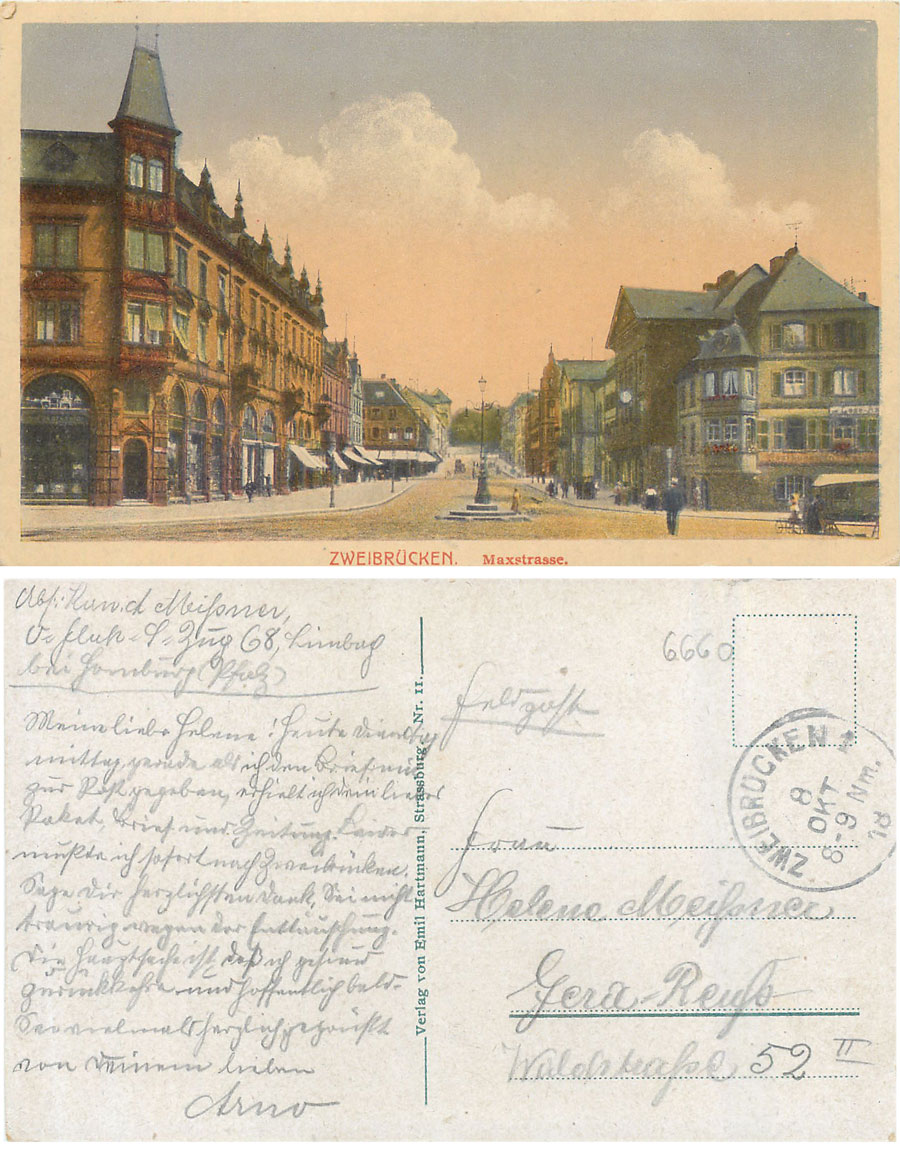 ZWEIBRÜCKEN. Maxstrasse.
Abs: Kan. d Meißner,
Flak-S-Zug 68, Limbach
bei Homburg (Pfalz)
Meine liebe Helene! Heute Dienstag
mittag, gerade als ich den Brief
zur Post gegeben, erhielt ich dein liebes
Paket, Brief und Zeitung. Leider
mußte ich sofort nach Zweibrücken.
Sage Dir herzlichsten Dank, Sei nicht
traurig wegen der Enttäuschung.
Die Hauptsache ist, daß ich gesund
zurückkehre und hoffentlich bald.
Sei vielmals herzlich gegrüßt
von Deinem lieben
Arno
Verlag von Emil Hartmann, Strassburg. Nr. 11.
6660
Feldpost
ZWEIBRÜCKEN 1
8
OKT
8-9 Nm.
18
Frau
Helene Meißner
Gera-Reuß
Waldstraße 52 II